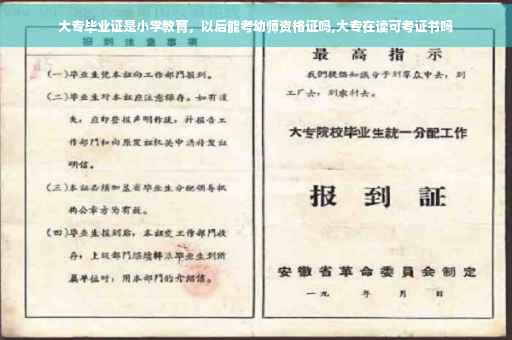 大专毕业证是小学教育，以后能考幼师资格证吗,大专在读可考证书吗
报到注意事项
(一)毕业生凭本证向工作部门报到。
(二)毕业生对本证应注意保存。如有遗
失，应即登报声明作废，并报告工
作部门和向原发证机关申请补发证
明信。
(三)本证必须加盖省毕业生分配领导机
构公章方为有效。
(四)毕业生报到后，本证交工作部门收
存；上级部门继续转派毕业生到所
属单位时，用本部门的介绍信。
最高指示
我们提倡知识分子到群众中去，到
工厂去，到农村去。
大专院校毕业生統一分配工作
报到証
安徽省革命委員会制定
一九 年 月 日